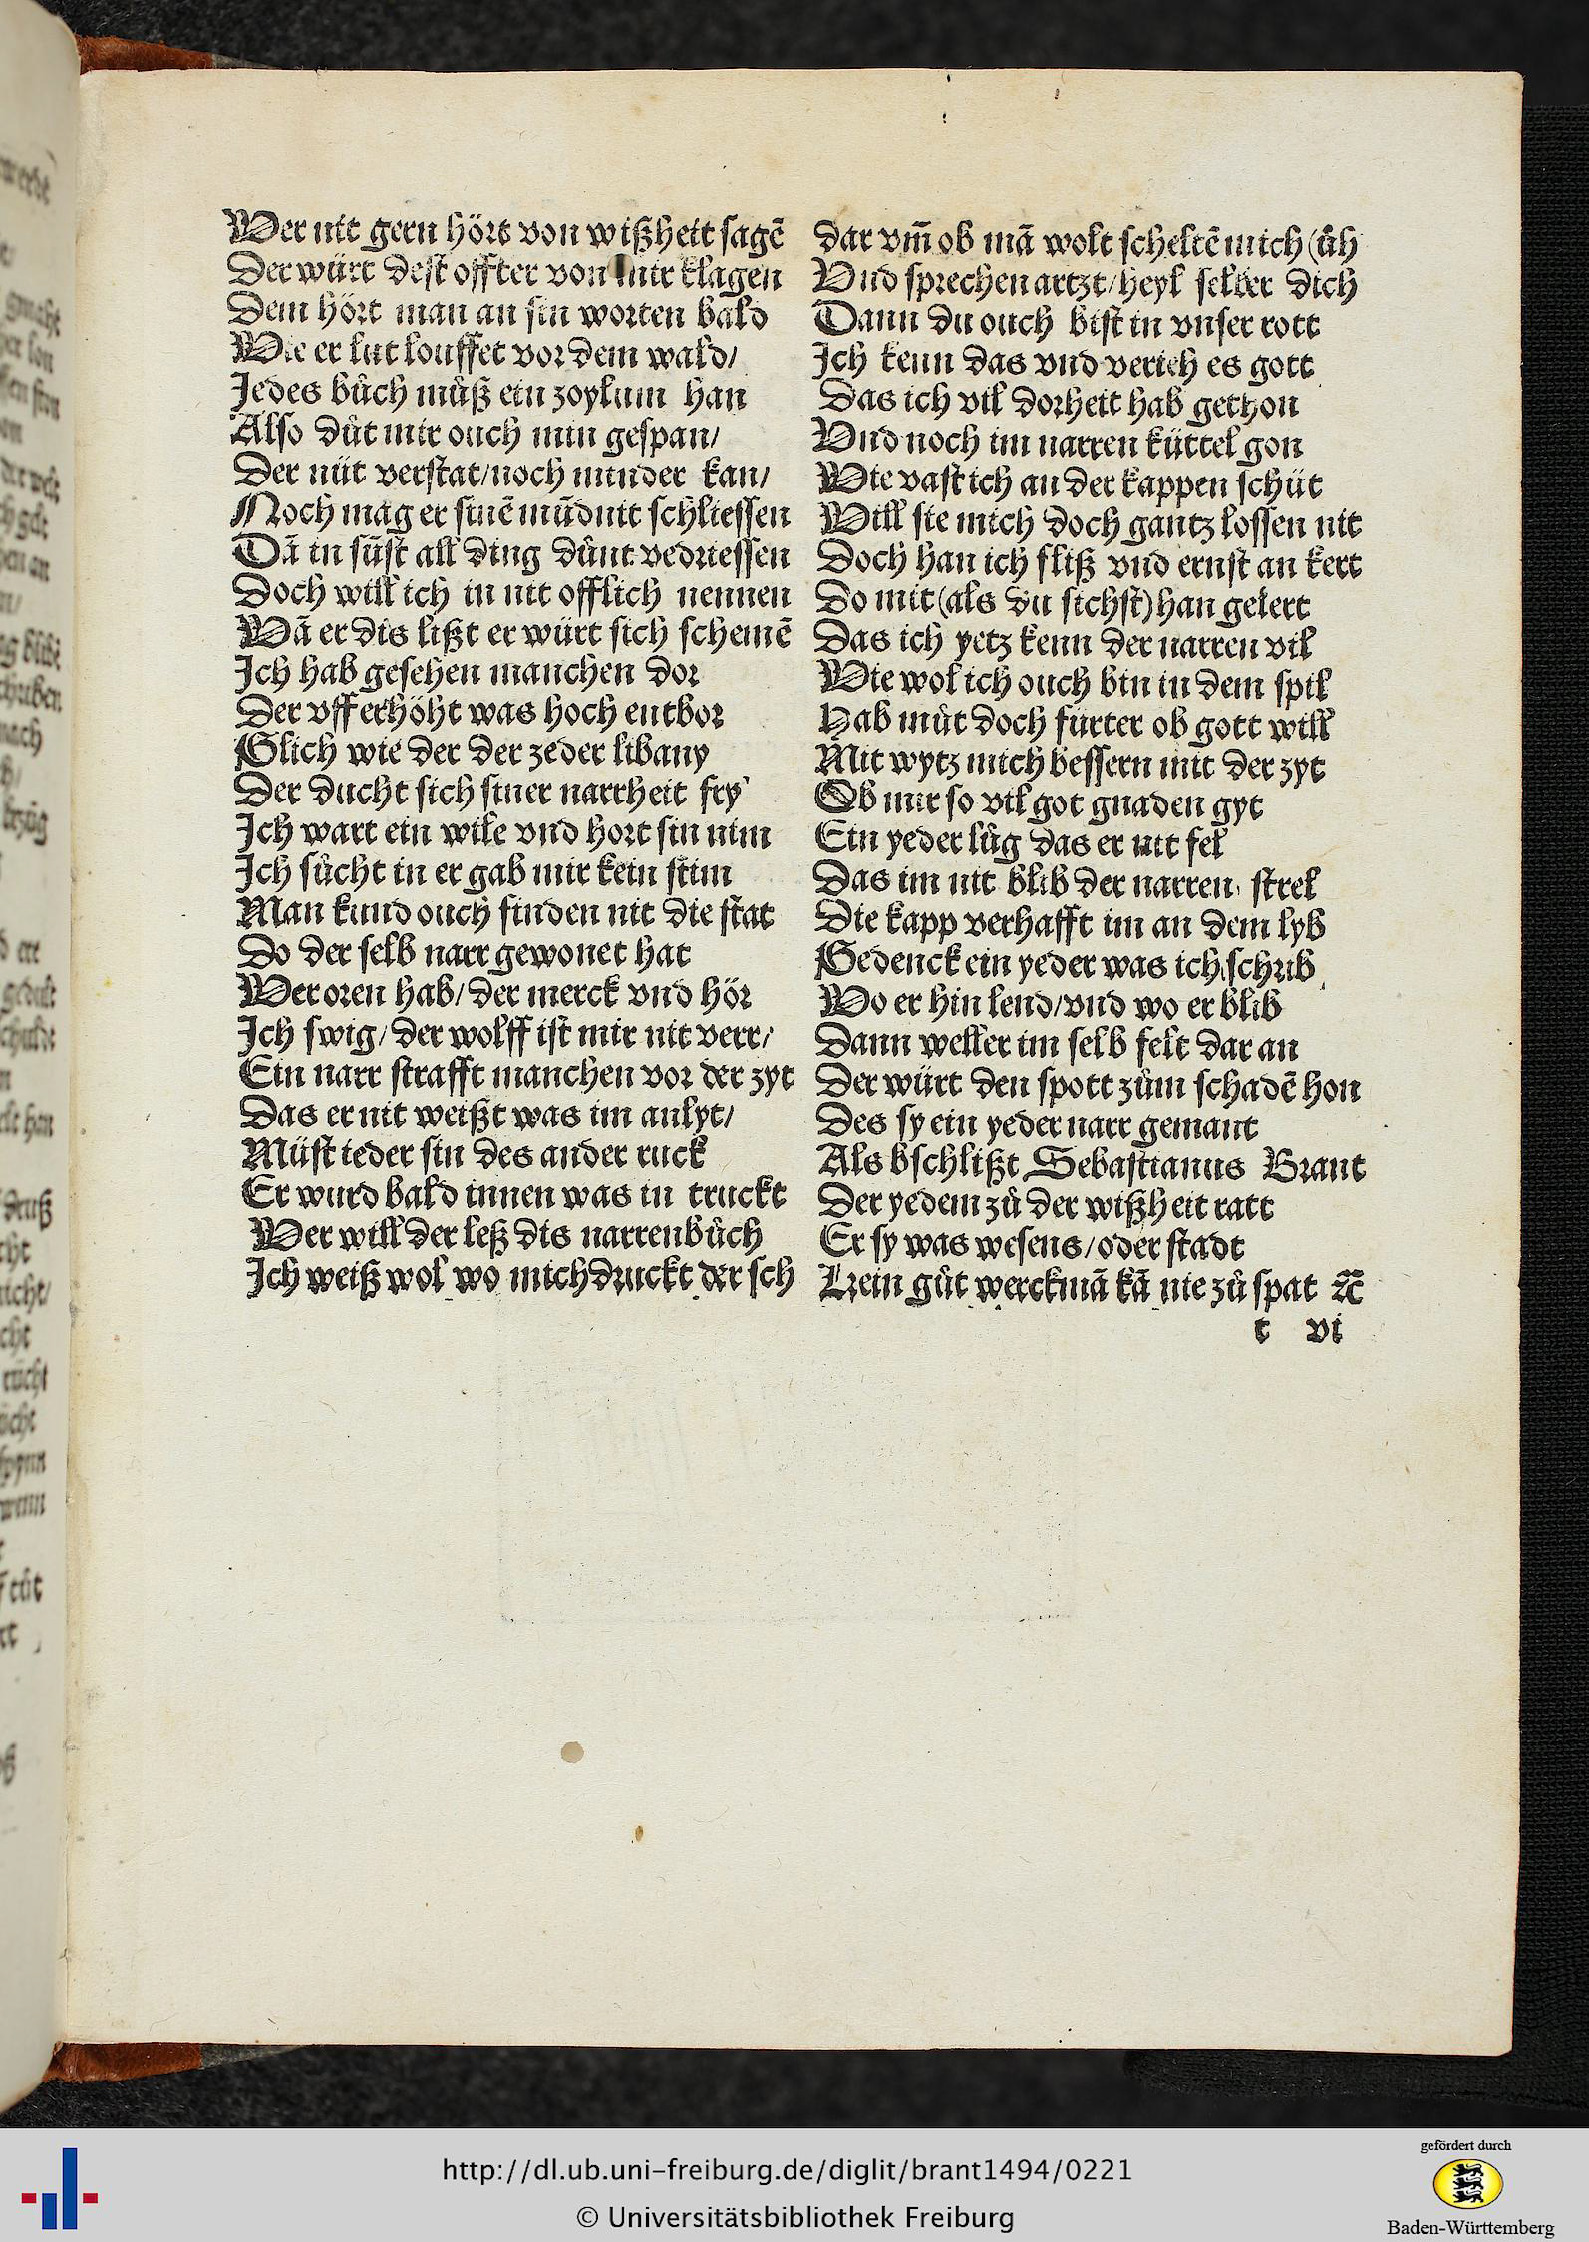 Wer nit gern hört von wißheit sagē
Der würt dest offter von mir klagen
Dem hört man an sin worten bald
Wie er lut louffet vor dem wald/
Jedes bůch můß ein zoylum han
Also důt mir ouch min gespan/
Der nüt verstat/noch minder kan/
Noch mag er sinē mūd nit schliessen
Dā in sůst all ding důnt vedriessen
Doch will ich in nit offlich nennen
Wā er dis lißt er würt sich schemē
Ich hab gesehen manchen dor
Der vff erhöht was hoch entbor
Glich wie der der zeder libany
Der ducht sich siner narrheit fry
Ich wart ein wile vnd hort sin nim
Ich sůcht in er gab mir kein stim
Man kund ouch finden nit die stat
Do der selb narr gewonet hat
Wer oren hab/der merck vnd hör
Ich swig/der wolff ist mir nit verr/
Ein narr strafft manchen vor der zyt
Das er nit weißt was im anlyt/
Müst ieder sin des ander ruck
Er wurd bald innen was in truckt
Wer will der leß dis narrenbůch
Ich weiß wol wo mich druckt der sch
dar vm̄ ob mā wolt scheltē mich (ůh
Vnd sprechen artzt/heyl selber dich
Dann du ouch bist in vnser rott
Ich kenn das vnd verieh es gott
Das ich vil dorheit hab gethon
Vnd noch im narren küttel gon
Wie vast ich an der kappen schüt
Will sie mich doch gantz lossen nit
Doch han ich fliß vnd ernst an kert
Do mit (als du sichst) han gelert
Das ich yetz kenn der narren vil
Wie wol ich ouch bin in dem spil
Hab můt doch fürter ob gott will
Mit wytz mich bessern mit der zyt
Ob mir so vil got gnaden gyt
Ein yeder lůg das er nit fel
Das im nit blib der narren strel
Die kapp verhafft im an dem lyb
Gedenck ein yeder was ich schrib
Wo er hin lend/vnd wo er blib
Dann weller im selb felt dar an
Der würt den spott zům schadē hon
Des sy ein yeder narr gemant
Als bschlißt Sebastianus Brant
Der yedem zů der wißheit ratt
Er sy was wesens/oder stadt
Kein gůt werckmā kā nie zů spat ⁊c̄
t vi
http://dl.ub.uni-freiburg.de/diglit/brant1494/0221
© Universitätsbibliothek Freiburg
gefördert durch
Baden-Württemberg